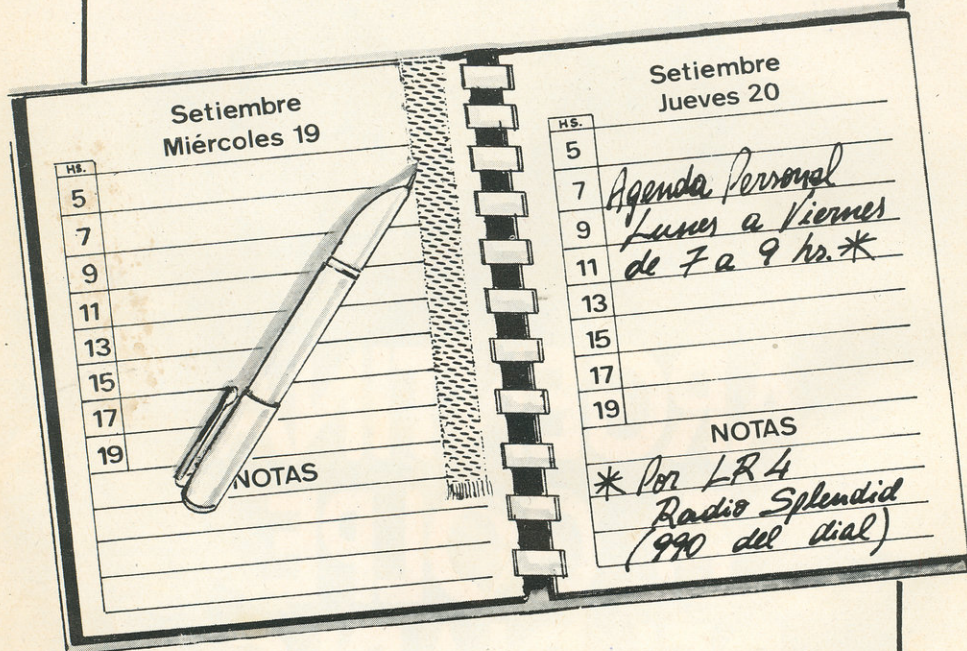 Setiembre
Miércoles 19
HS.
5
7
9
11
13
15
17
19
NOTAS
Setiembre
Jueves 20
HS.
5
7 Agenda Personal
9 Lunes a Viernes
11 de 7 a 9 hs.*
13
15
17
19
NOTAS
* Por LR4
Radio Splendid
(990 del dial)